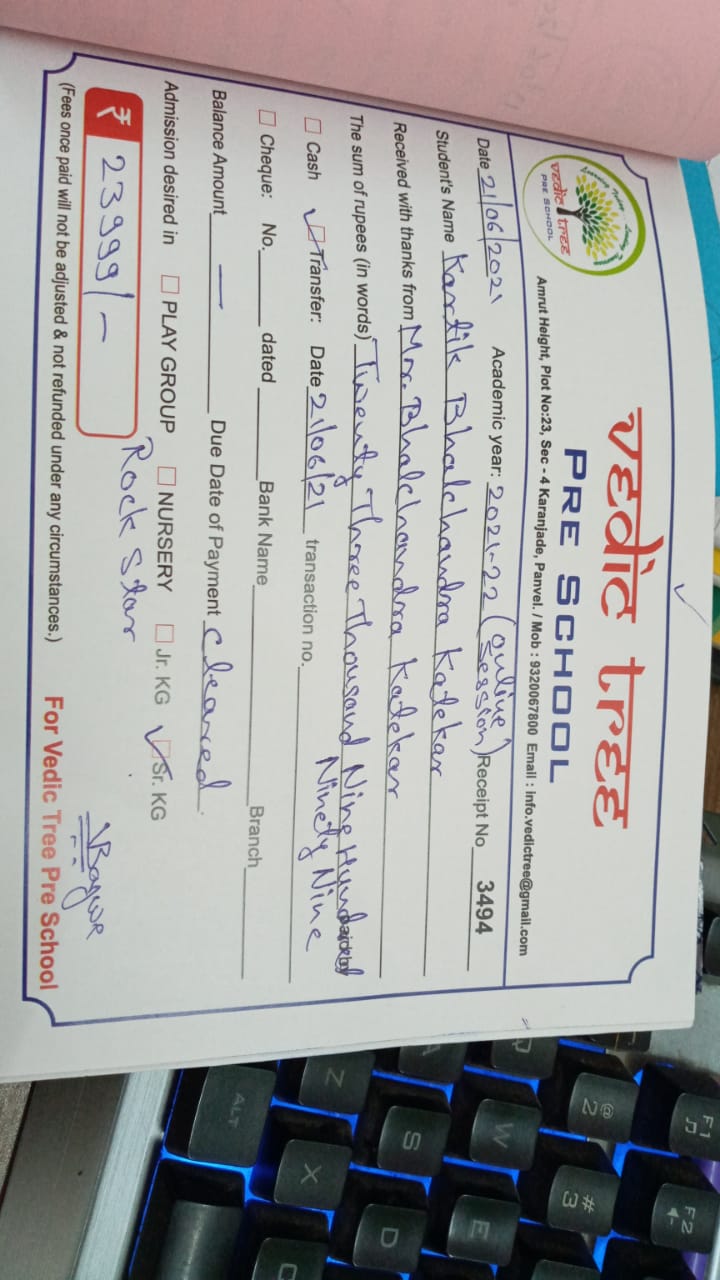 vedic tree
PRE SCHOOL
vedic tree
PRE SCHOOL
Amrut Height, Plot No:23, Sec - 4 Karanjade, Panvel. / Mob : 9320067800 Email : info.vedictree@gmail.com
Date 21/06/2021 Academic year: 2021-22 (online session) Receipt No 3494
Student's Name Kartik Bhalchandra Katekar
Received with thanks from Mr. Bhalchandra Katekar
The sum of rupees (in words) Twenty Three Thousand Nine Hundred
Ninety Nine
Cash Transfer: Date 21/06/21 transaction no.
Cheque: No. dated Bank Name Branch
Balance Amount — Due Date of Payment cleared.
Admission desired in PLAY GROUP NURSERY Jr. KG Sr. KG
Rock Star
₹ 23999/-
(Fees once paid will not be adjusted & not refunded under any circumstances.) For Vedic Tree Pre School
F1
F2
@
2
#
3
W
E
A
S
D
Z
X
ALT